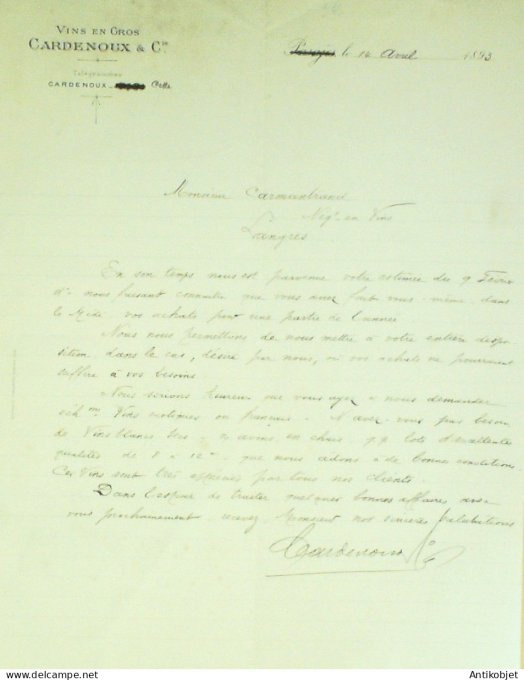 VINS EN GROS
CARDENOUX & Cie
Télégrammes
CARDENOUX Cette
le 14 Avril 1893
Monsieur Carmantrand
Négt en Vins
Langres
En son temps nous est parvenue votre estimée du 9 Févrix
dr nous faisant connaître que vous avez fait vous-même dans
le Midi vos achats pour une partie de l'année
Nous nous permettons de nous mettre à votre entière dispo-
sition dans le cas, désiré par nous, où vos achats ne pourraient
suffire à vos besoins
Nous serions heureux que vous ayez à nous demander
éch ons Vins exotiques ou français. N'avez-vous pas besoin
de Vins blancs secs. Nous avons en chais qq lots d'excellente
qualités de 8 à 12° que nous cédons à de bonnes conditions.
Ces Vins sont très appréciés par tous nos clients.
Dans l'espoir de traiter quelques bonnes affaires avec
vous prochainement, recevez Monsieur nos sincères salutations
Cardenoux & Co
Antikobjet